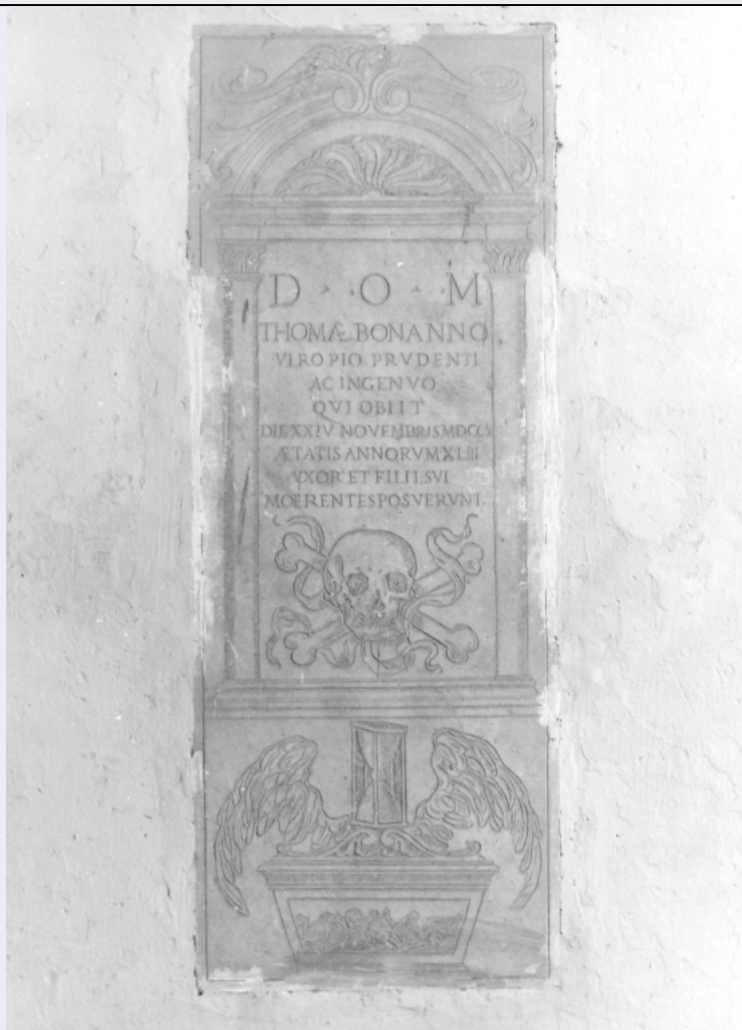 D · O · M
THOMÆ BONANNO
VIRO PIO PRVDENTI
AC INGENVO
QVI OBIIT
DIE XXIV NOVEMBRIS
ÆTATIS ANNORVM XLIII
VXOR ET FILII SVI
MOERENTES POSVERVNT.